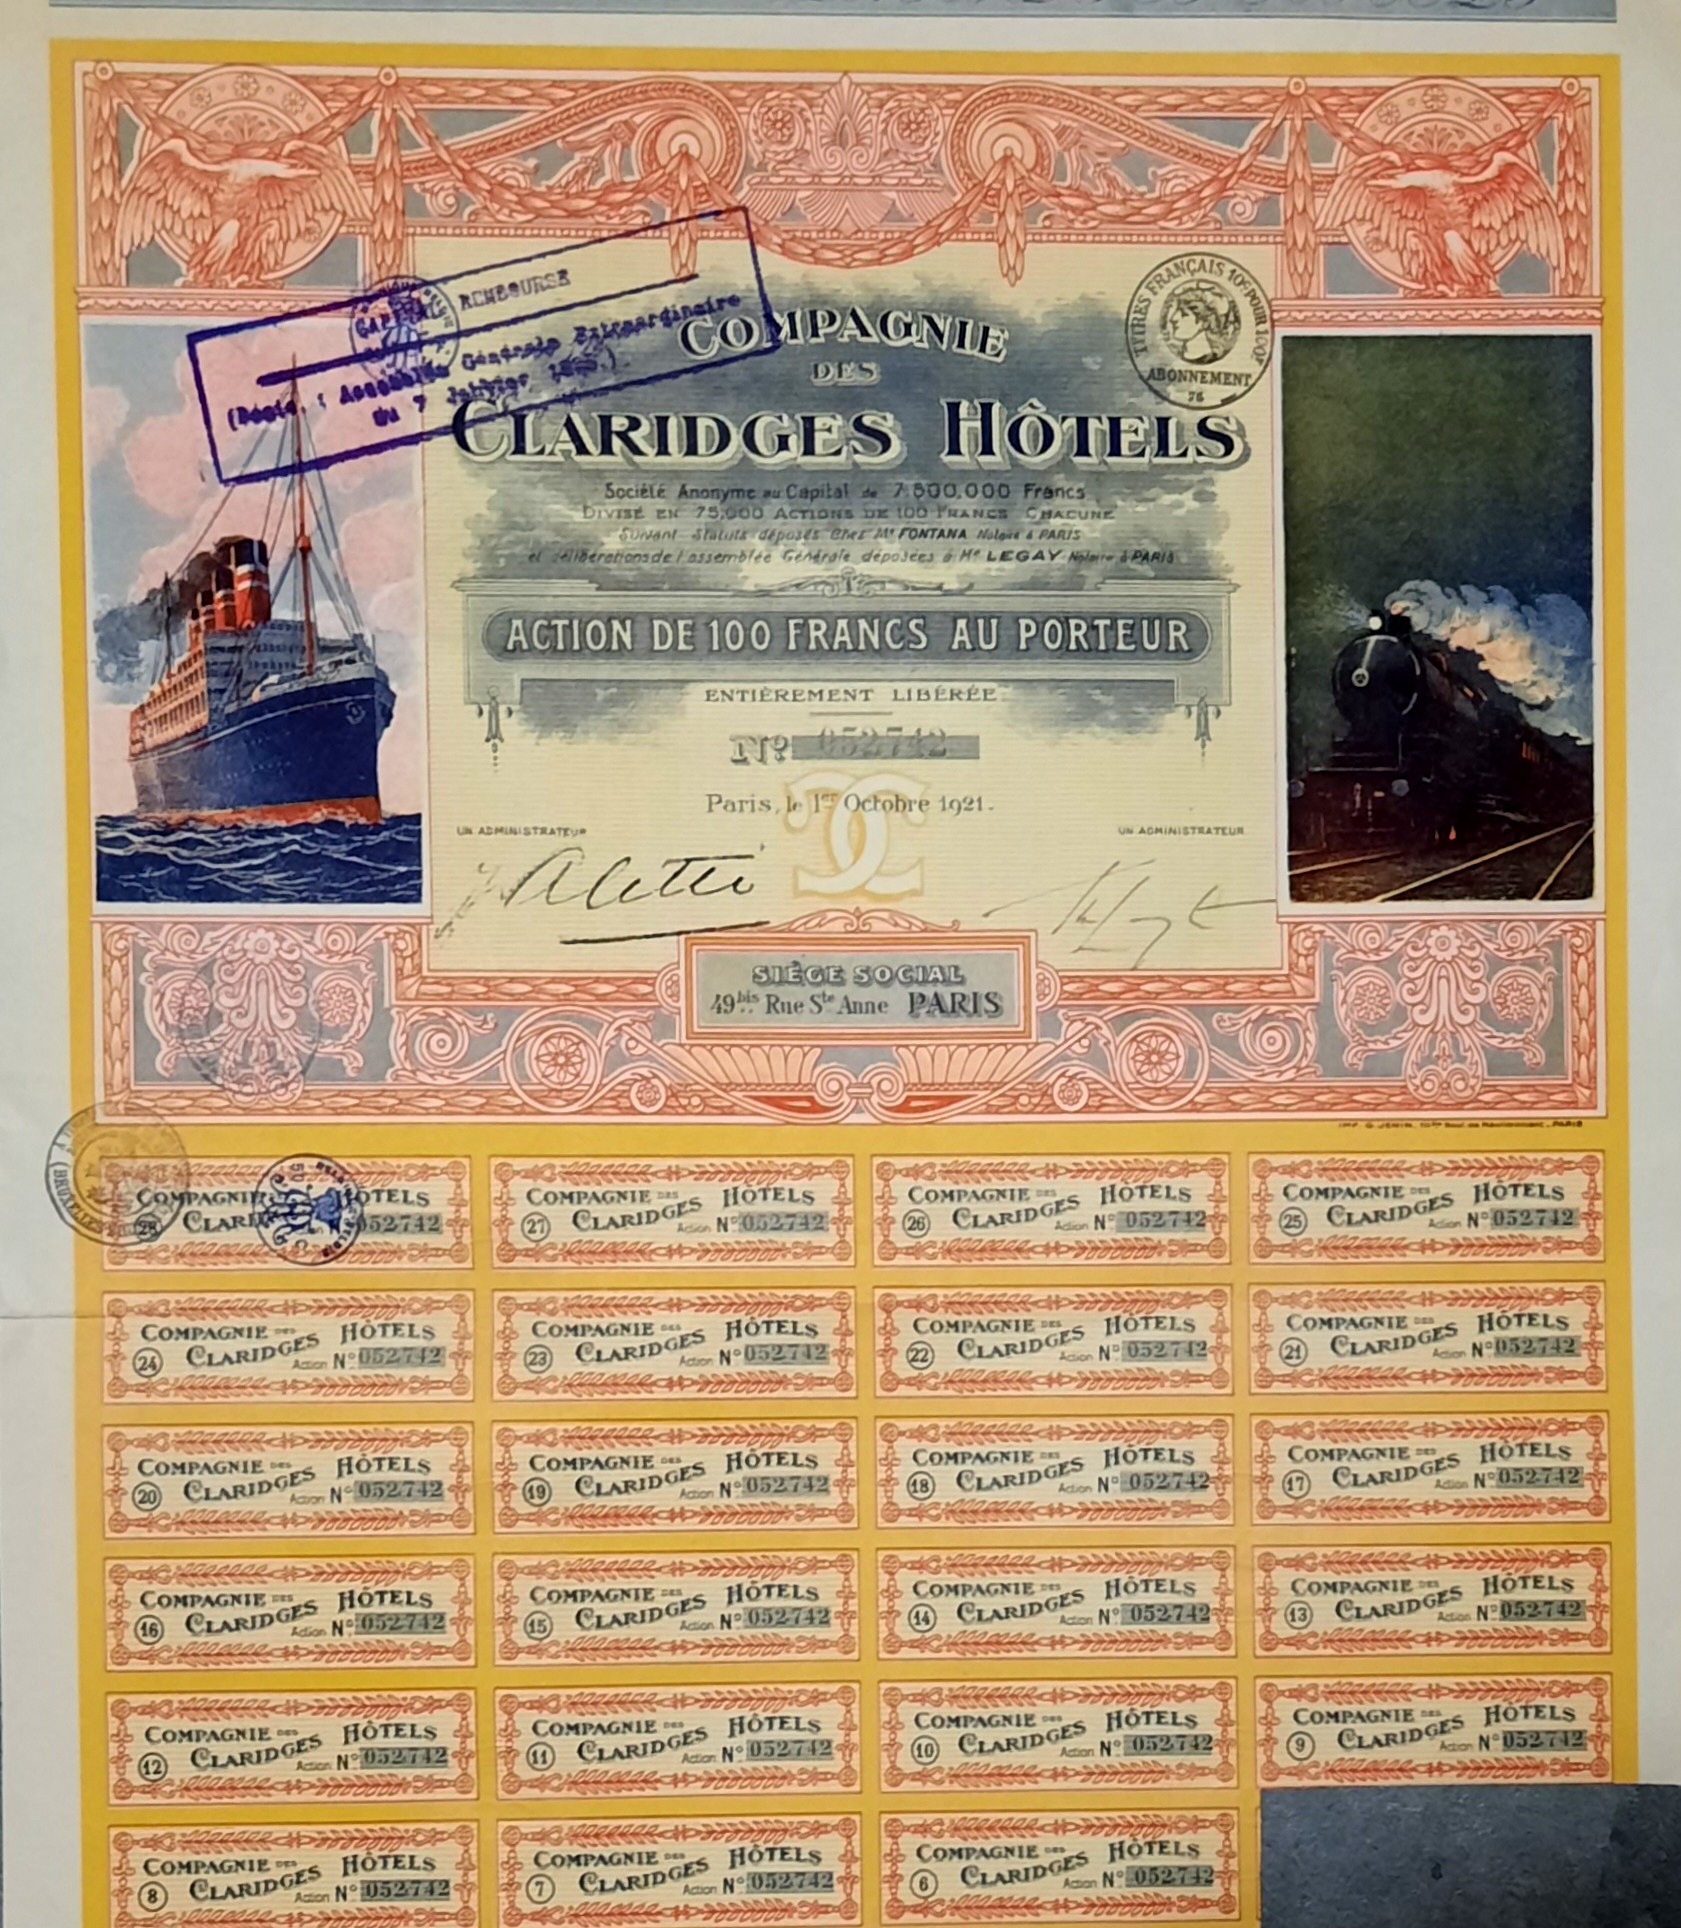 CAPITAL REMBOURSE
Assemblée Générale Extraordinaire
du 7 Janvier
TITRES FRANÇAIS 10c POUR 100F
ABONNEMENT
76
COMPAGNIE
DES
CLARIDGES HÔTELS
Société Anonyme au Capital de 7.500.000 Francs
DIVISÉ EN 75,000 ACTIONS DE 100 FRANCS CHACUNE
Suivant Statuts déposés Chez Me FONTANA Notaire à PARIS
et délibérations de l'assemblée Générale déposées à Me LEGAY Notaire à PARIS
ACTION DE 100 FRANCS AU PORTEUR
ENTIÈREMENT LIBÉRÉE
No 052742
Paris, le 1er Octobre 1921.
UN ADMINISTRATEUR
UN ADMINISTRATEUR
SIÈGE SOCIAL
49bis Rue Ste Anne PARIS
IMP. G. JENIN, PARIS
COMPAGNIE HÔTELS
28 052742
COMPAGNIE DES HÔTELS
27 CLARIDGES Action No 052742
COMPAGNIE DES HÔTELS
26 CLARIDGES Action No 052742
COMPAGNIE DES HÔTELS
25 CLARIDGES Action No 052742
COMPAGNIE DES HÔTELS
24 CLARIDGES Action No 052742
COMPAGNIE DES HÔTELS
23 CLARIDGES Action No 052742
COMPAGNIE DES HÔTELS
22 CLARIDGES Action No 052742
COMPAGNIE DES HÔTELS
21 CLARIDGES Action No 052742
COMPAGNIE DES HÔTELS
20 CLARIDGES Action No 052742
COMPAGNIE DES HÔTELS
19 CLARIDGES Action No 052742
COMPAGNIE DES HÔTELS
18 CLARIDGES Action No 052742
COMPAGNIE DES HÔTELS
17 CLARIDGES Action No 052742
COMPAGNIE DES HÔTELS
16 CLARIDGES Action No 052742
COMPAGNIE DES HÔTELS
15 CLARIDGES Action No 052742
COMPAGNIE DES HÔTELS
14 CLARIDGES Action No 052742
COMPAGNIE DES HÔTELS
13 CLARIDGES Action No 052742
COMPAGNIE DES HÔTELS
12 CLARIDGES Action No 052742
COMPAGNIE DES HÔTELS
11 CLARIDGES Action No 052742
COMPAGNIE DES HÔTELS
10 CLARIDGES Action No 052742
COMPAGNIE DES HÔTELS
9 CLARIDGES Action No 052742
COMPAGNIE DES HÔTELS
8 CLARIDGES Action No 052742
COMPAGNIE DES HÔTELS
7 CLARIDGES Action No 052742
COMPAGNIE DES HÔTELS
6 CLARIDGES Action No 052742